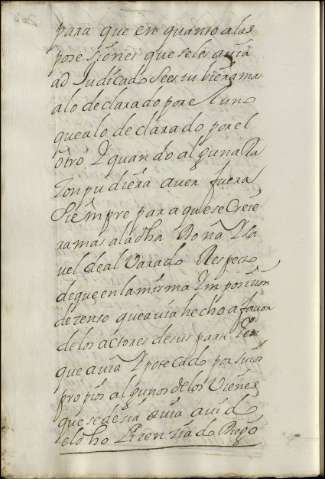 para que en quanto a las
posesiones que se les auia
adJudicado se estubiera mas
a lo declarado por el uno
que a lo declarado por el
otro Y quando alguna Ra
son pudiera auer fuera
siempre para que se Creie
ra mas a la dha Doña Ysa
uel de alvarado Respecto
de que en la misma Imposision
de zenso que auia hecho a fauor
de los actores de sus par
que auia Ypotecado por suios
propios algunos de los Vienes
que se desia auia auido
el dho Lizensiado Diego